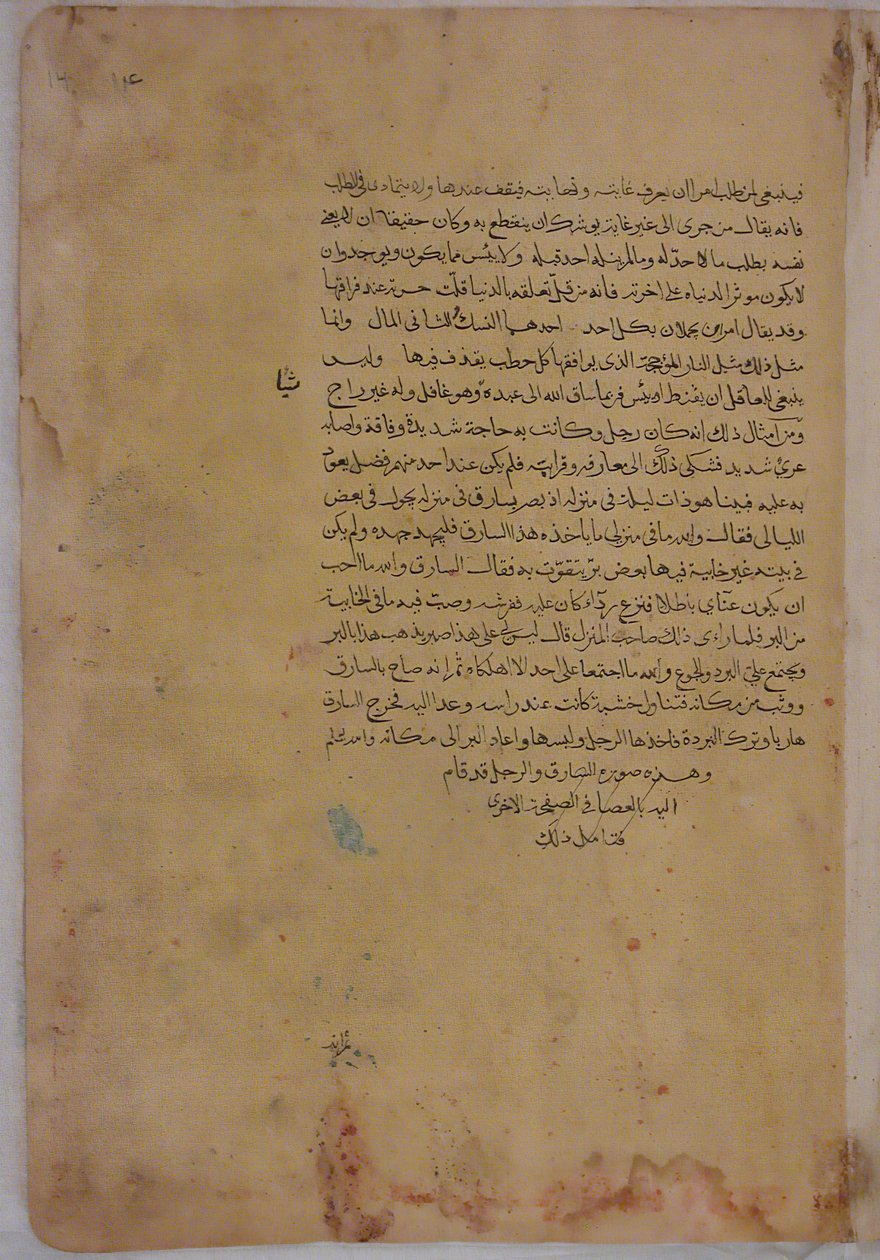 ١٤
فينبغي لمن طلب امرا ان يعرف غايته ونهايته فيقف عندها ولا يتمادى في الطلب
فانه يقال من جرى الى غير غاية يوشك ان ينقطع به وكان حقيقا ان لا يعني
نفسه بطلب ما لا حد له وما لم ينله احد قبله ولا ييئس مما يكون ويوجد وان
لا يكون موثرا لدنياه على اخرته فانه من قل تعلقه بالدنيا قلت حسرته عند فراقها
وقد يقال امرين يجملان بكل احد احدهما النسك والثاني المال وانما
مثل ذلك مثل النار المؤججة الذي يوافقها كل حطب يقذف فيها وليس
شيأ
ينبغي للعاقل ان يقنط او ييئس فربما ساق الله الى عبده وهو غافل وله غير راج
ومن امثال ذلك انه كان رجل وكانت به حاجة شديدة وفاقة واصابه
عري شديد فشكى ذلك الى معارفه وقرابته فلم يكن عند احد منهم فضل يعود
به عليه فبينا هو ذات ليلة في منزله اذ بصر بسارق في منزله يجول في بعض
الليالى فقال والله ما في منزلى ما ياخذه هذا السارق فليجهد جهده ولم يكن
في بيته غير خابية فيها بعض بر يتقوت به فقال السارق والله ما احب
ان يكون عناي باطلا فنزع رداء كان عليه ففرشه وصب فيه ما في الخابية
من البر فلما راى ذلك صاحب المنزل قال ليس لي على هذا صبر يذهب هذا بالبر
ويجتمع علي البرد والجوع والله ما اجتمعا على احد الا اهلكاه ثم إنه صاح بالسارق
ووثب من مكانه فتناول خشبة كانت عند راسه وعدا اليه فخرج السارق
هاربا وترك البردة فاخذها الرجل ولبسها واعاد البر الى مكانه والله يعلم
وهذه صورة السارق والرجل قد قام
اليه بالعصا في الصفحة الاخرى
فتامل ذلك